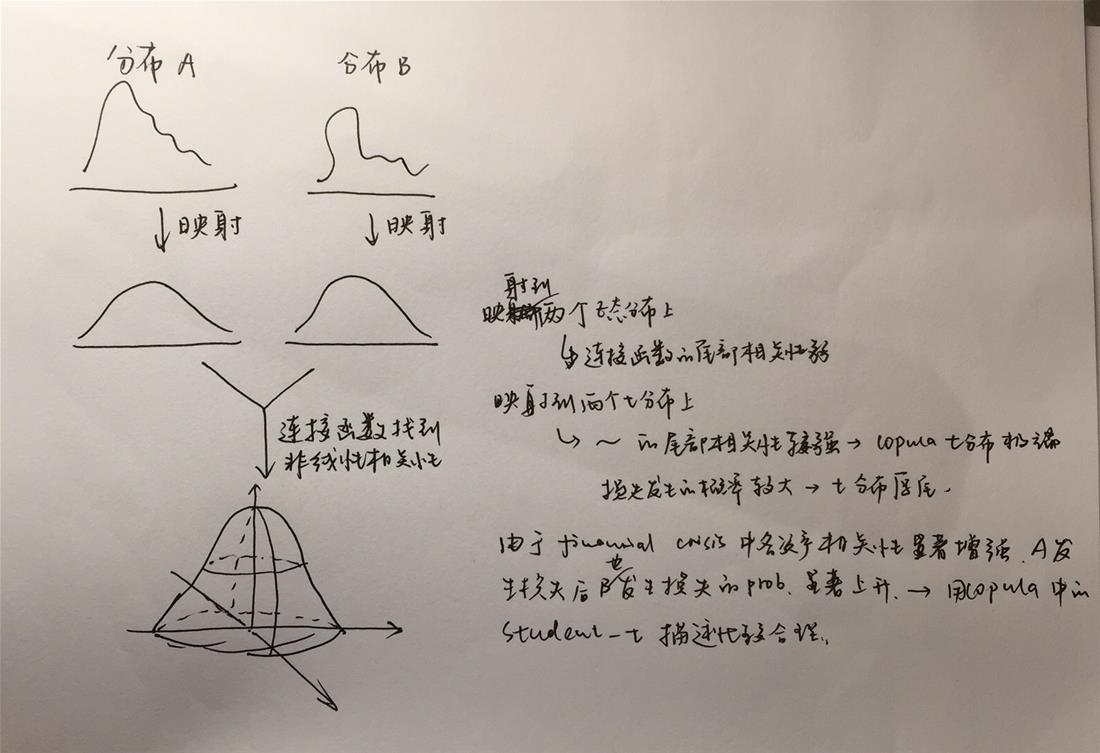 分布 A
分布 B
↓映射
↓映射
连接函数找到
非线性相关性
映射到两个正态分布上
↳连接函数的尾部相关性弱
映射到两个t分布上
↳ ~ 的尾部相关性较强 → copula t分布极端
损失发生的概率较大 → t分布厚尾.
由于 financial crisis 中各资产相关性显著增强. A发
生损失后B也发生损失的prob. 显著上升. → 用copula中的
Student-t 描述比较合理.